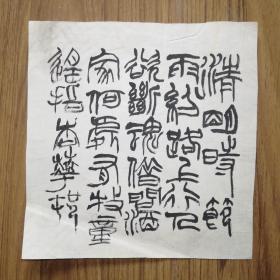 清明時節
雨紛路上行人
欲斷魂借問酒
家何處有牧童
遙指杏華邨